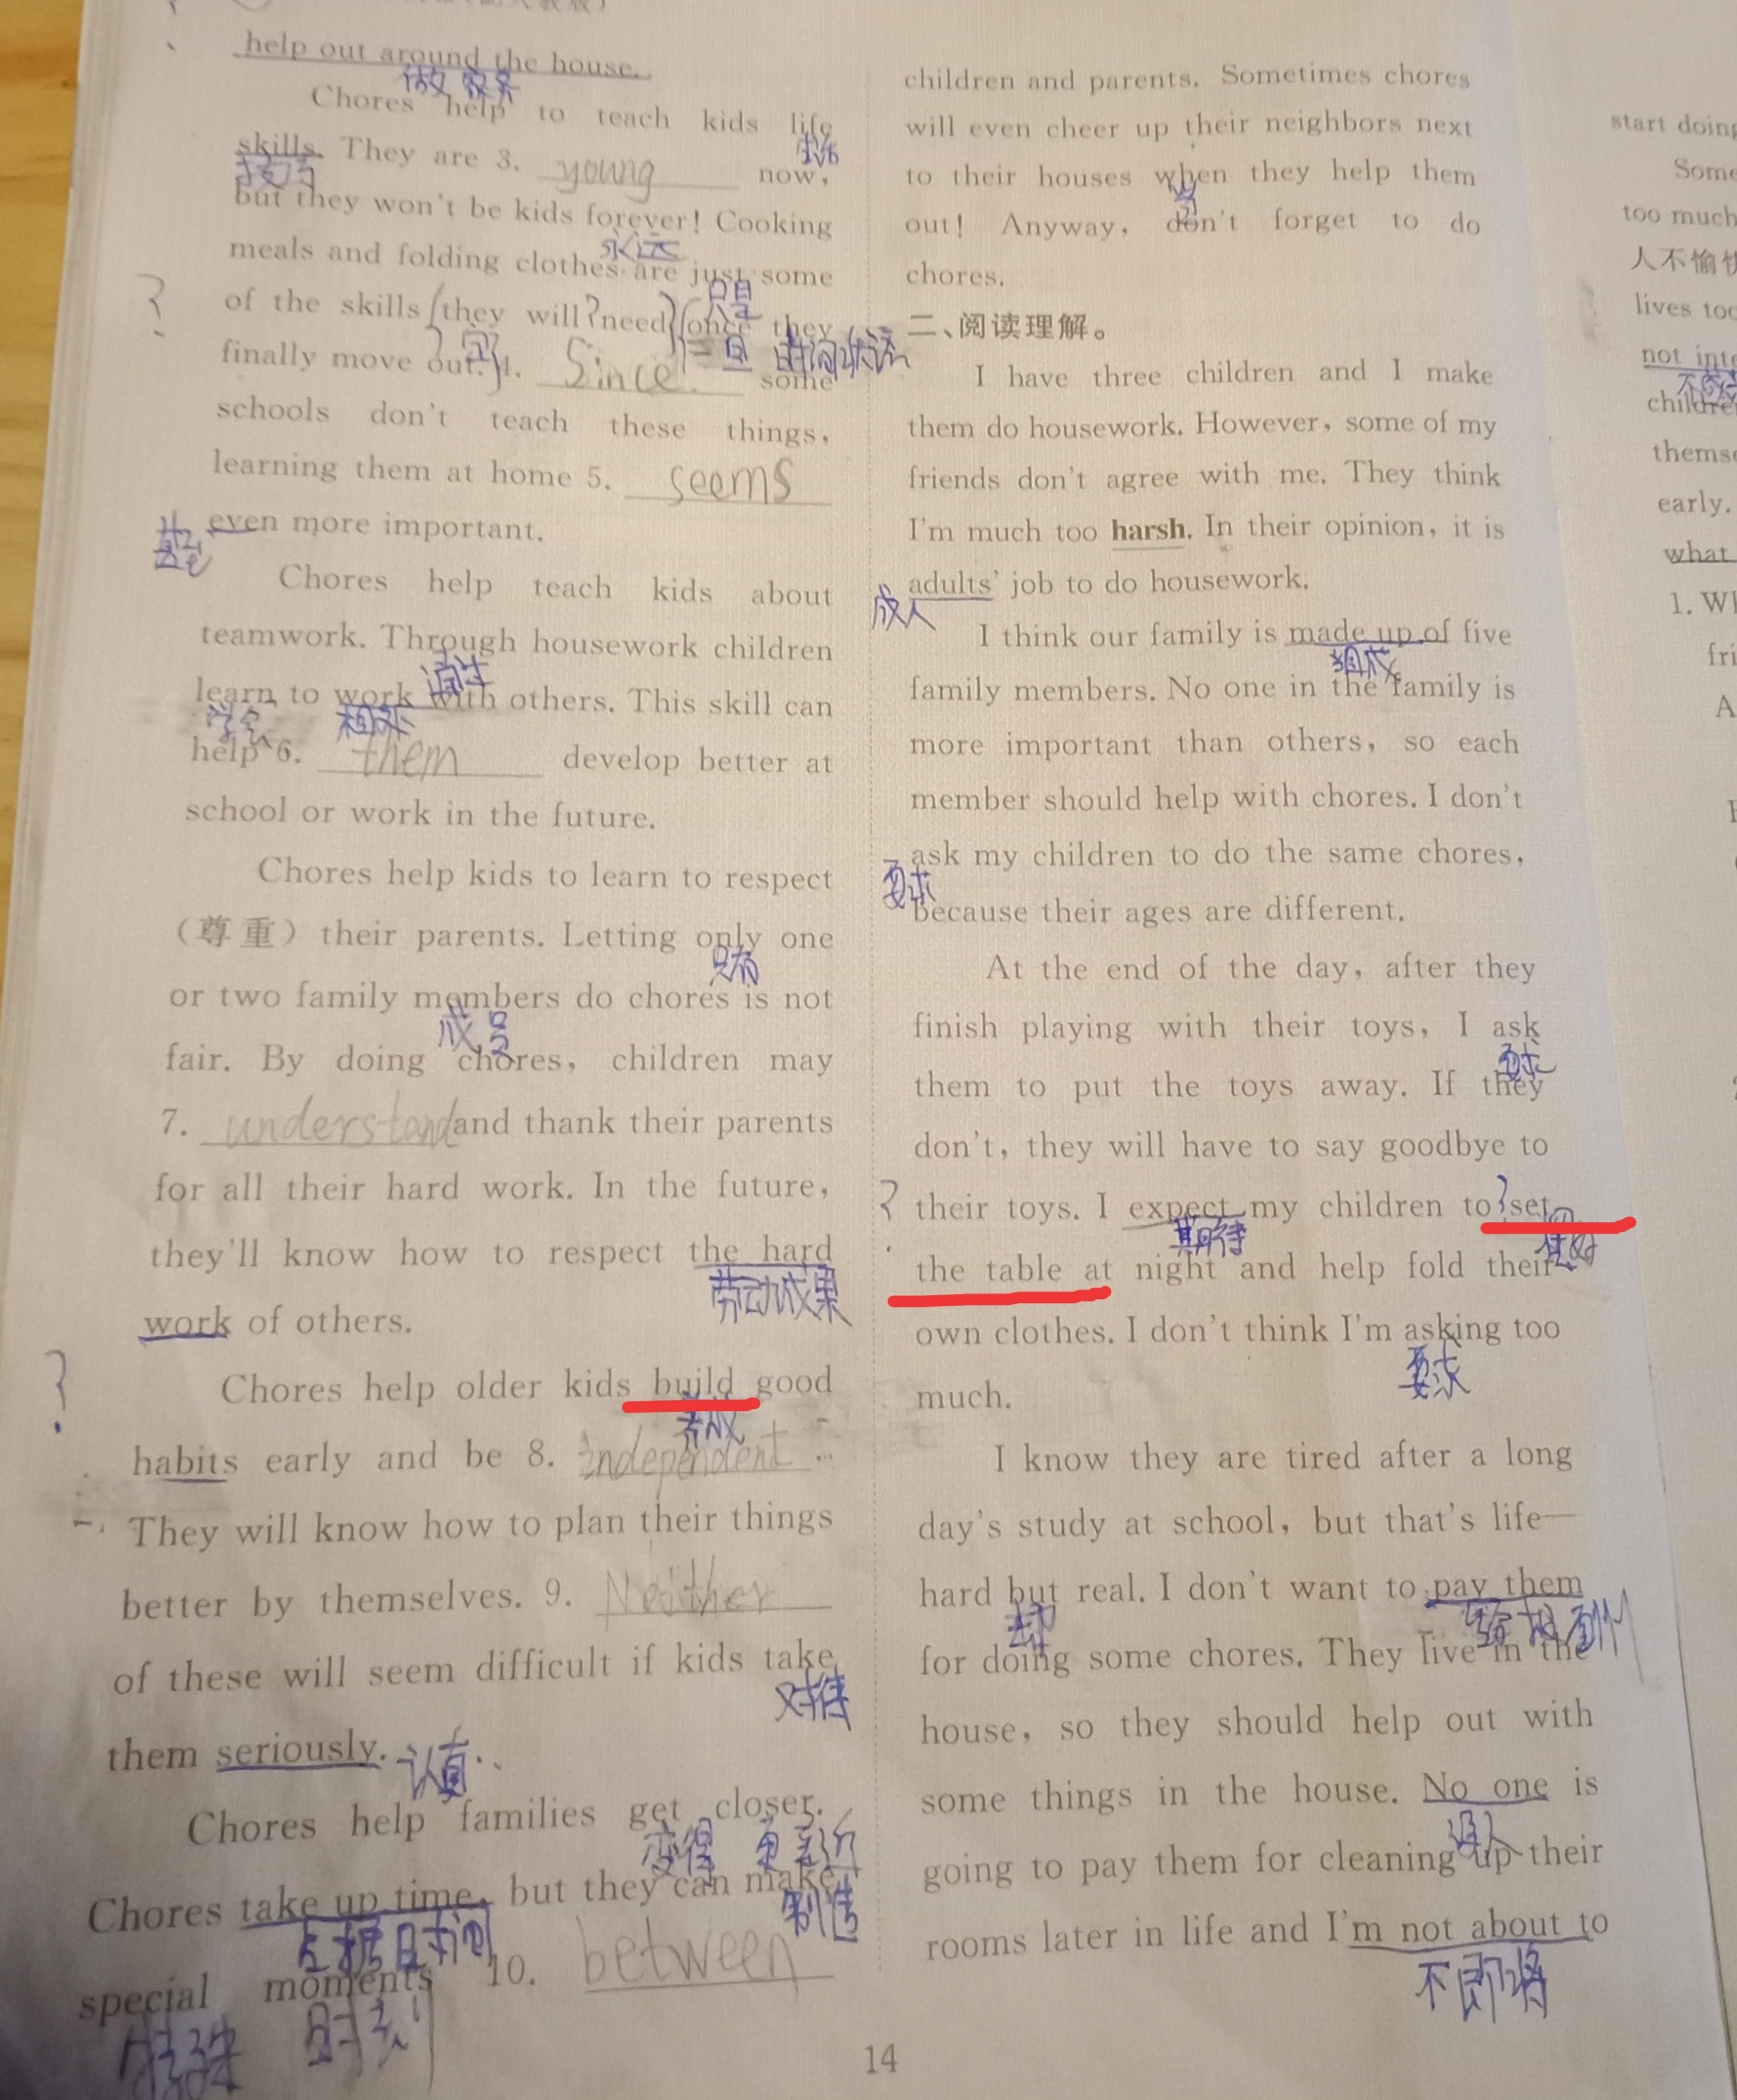 help out around the house.
做家务
Chores help to teach kids life
生活
skills. They are 3. young now,
技巧
but they won't be kids forever! Cooking
永远
meals and folding clothes are just some
只是
of the skills (they will? need) (once they
一旦 时间状语
finally move out.) 4. Since some
schools don't teach these things,
learning them at home 5. seems
even more important.
甚至
Chores help teach kids about
teamwork. Through housework children
通过
learn to work with others. This skill can
学会 相处
help 6. them develop better at
school or work in the future.
Chores help kids to learn to respect
（尊重）their parents. Letting only one
只有
or two family members do chores is not
成员
fair. By doing chores, children may
7. understand and thank their parents
for all their hard work. In the future,
they'll know how to respect the hard
劳动成果
work of others.
? Chores help older kids build good
养成
habits early and be 8. independent
They will know how to plan their things
better by themselves. 9. Neither
of these will seem difficult if kids take
对待
them seriously. 认真
Chores help families get closer.
变得 更亲近
Chores take up time, but they can make
占据时间 制造
special moments 10. between
特殊 时刻
children and parents. Sometimes chores
will even cheer up their neighbors next
to their houses when they help them
当
out! Anyway, don't forget to do
chores.
二、阅读理解。
I have three children and I make
them do housework. However, some of my
friends don't agree with me. They think
I'm much too harsh. In their opinion, it is
adults' job to do housework.
成人
I think our family is made up of five
组成
family members. No one in the family is
more important than others, so each
member should help with chores. I don't
ask my children to do the same chores,
要求
because their ages are different.
At the end of the day, after they
finish playing with their toys, I ask
要求
them to put the toys away. If they
don't, they will have to say goodbye to
? their toys. I expect my children to? set
期待
the table at night and help fold their
own clothes. I don't think I'm asking too
要求
much.
I know they are tired after a long
day's study at school, but that's life—
hard but real. I don't want to pay them
却
for doing some chores. They live in the
house, so they should help out with
some things in the house. No one is
没人
going to pay them for cleaning up their
rooms later in life and I'm not about to
不即将
14
start doing
Some
too much
人不愉快
lives too
not inte
childre
themse
early.
what
1. Wh
fri
A